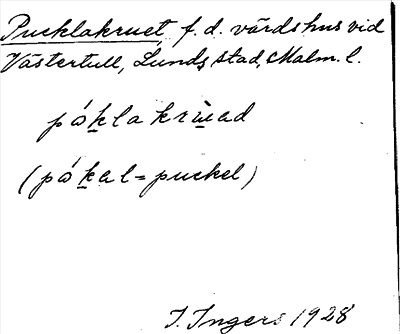 Pucklakruet f.d. värdshus vid
Västertull, Lunds stad, Malm. l.
pá̊kla krùad
(pá̊kal = puckel)
I. Ingers 1928